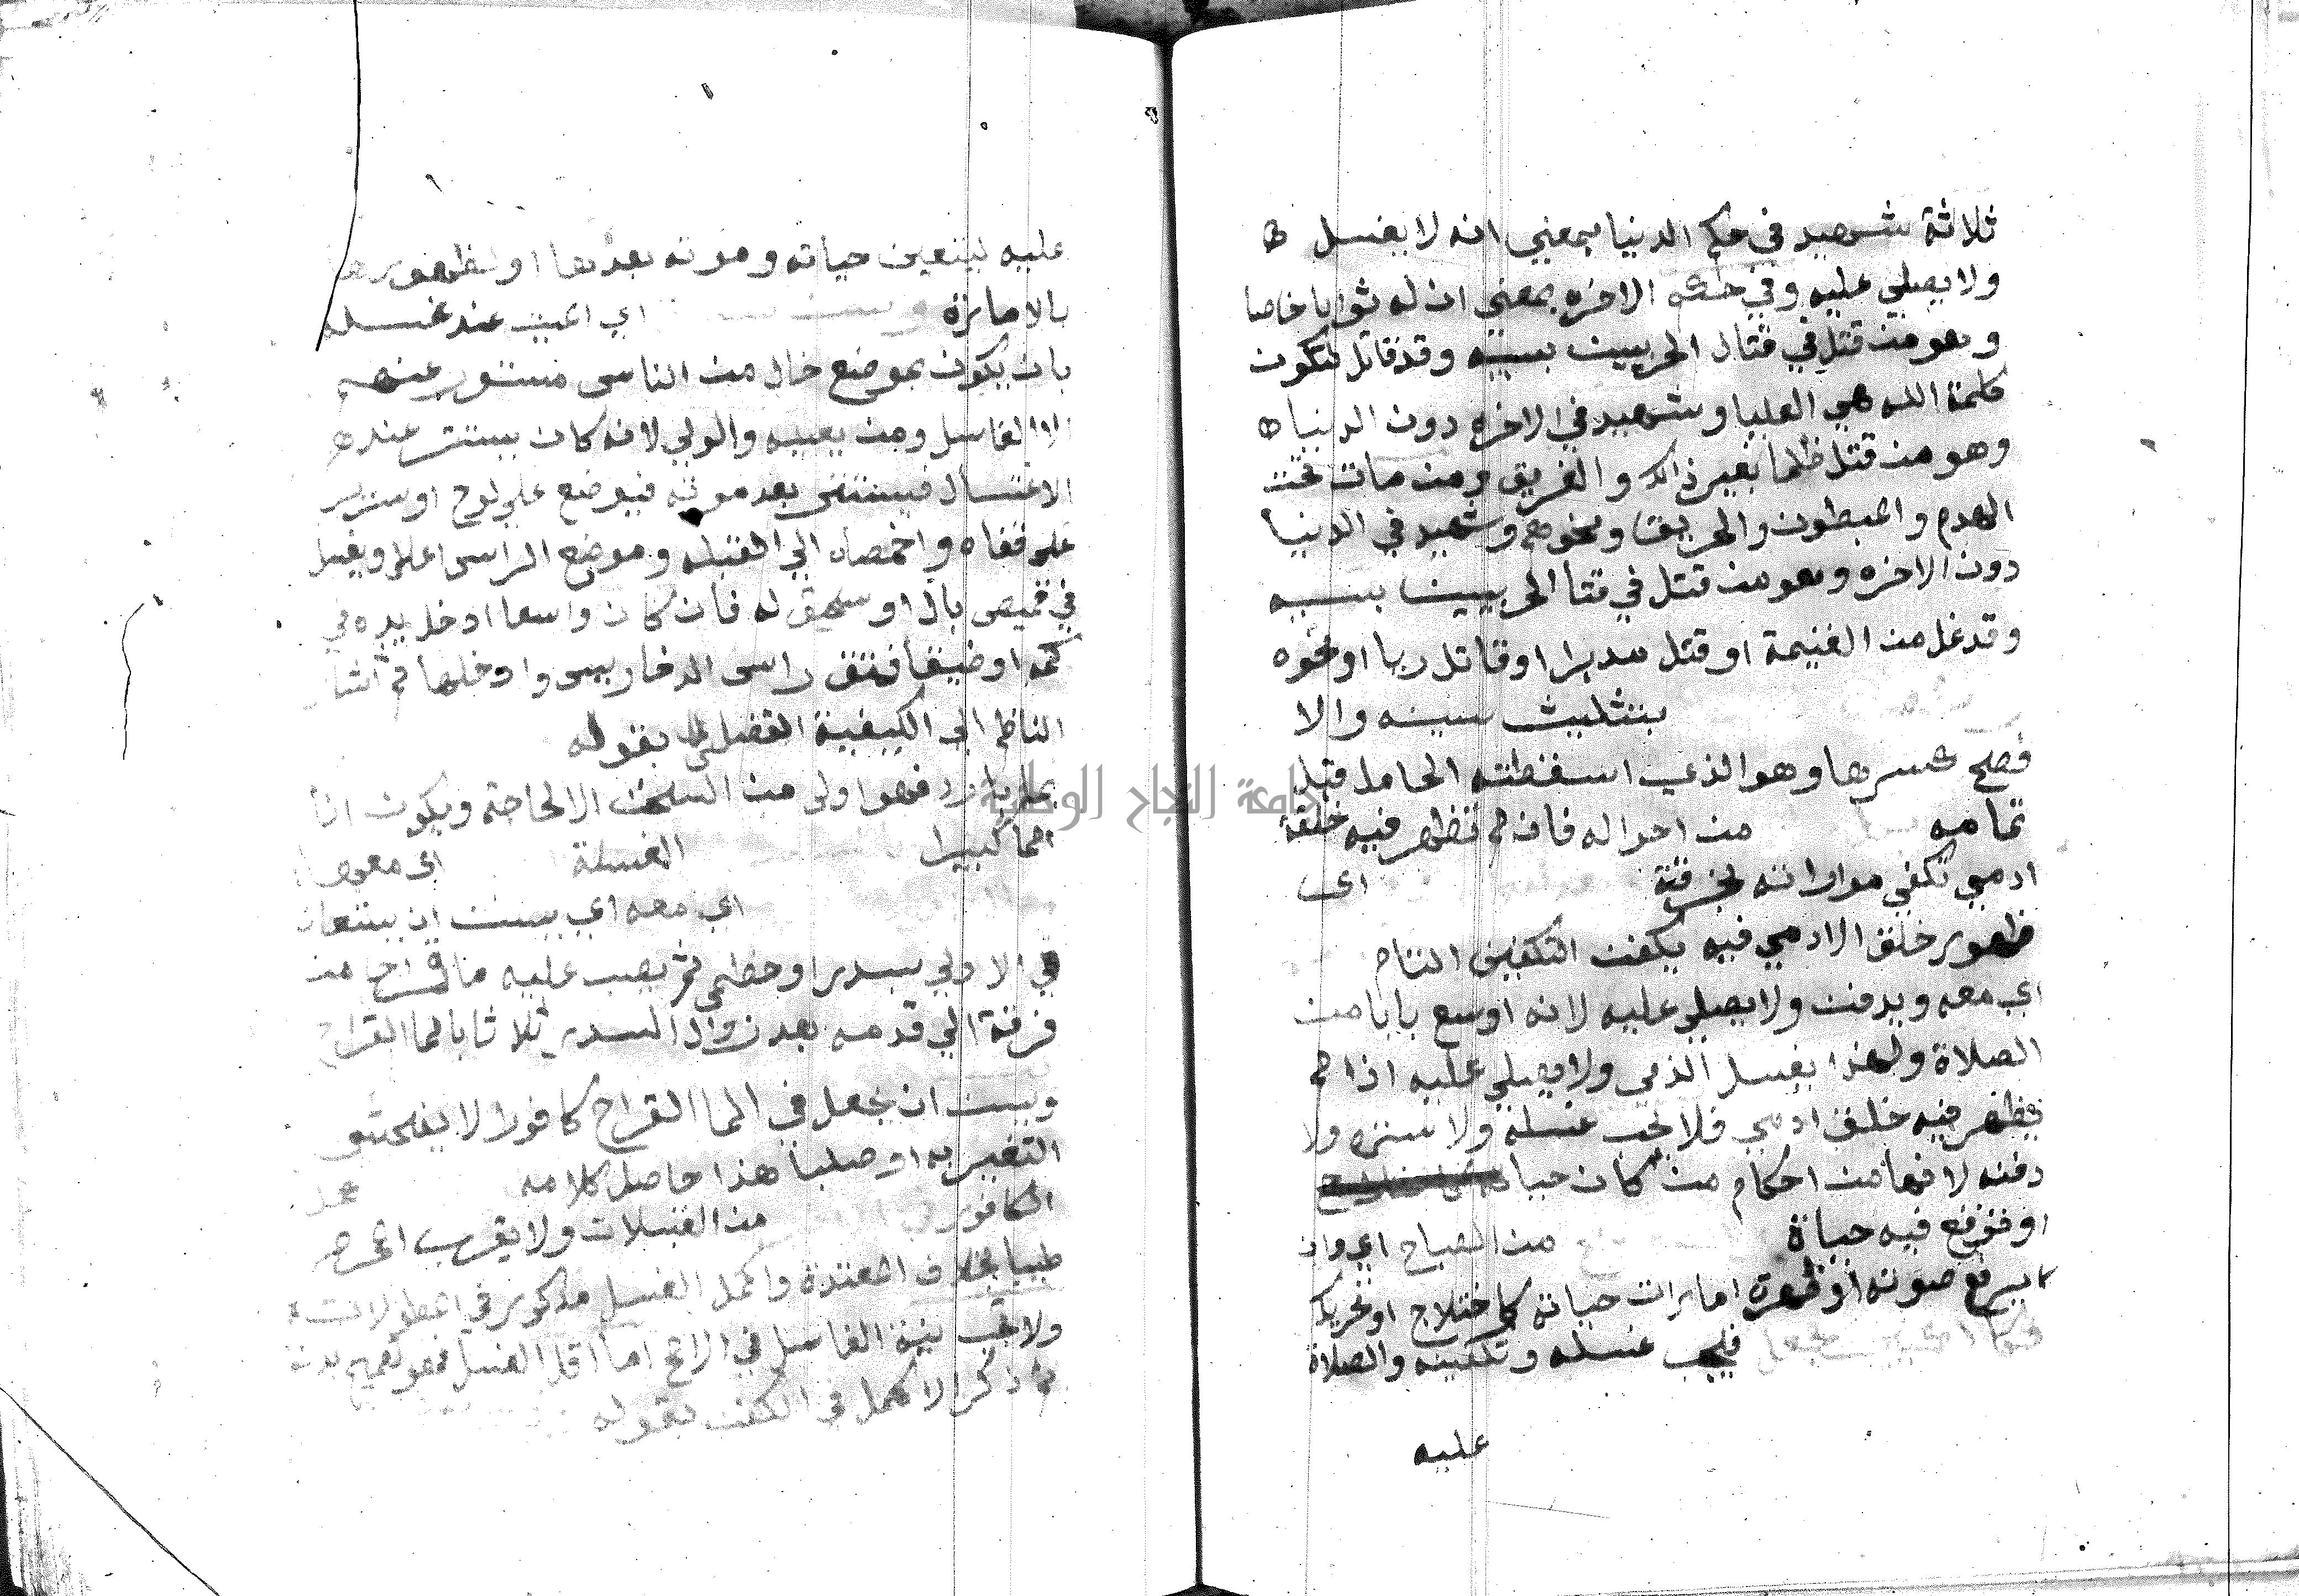 ثلاثة شهيد في حكم الدنيا بمعني انه لا يغسل
ولا يصلي عليه وفي حكم الاخره بمعني ان له ثوابا خاصا
وهو من قتل في قتال الحربيين بسببه وقد قاتل لتكون
كلمة الله هي العليا وشهيد في الاخره دون الدنيا
وهو من قتل ظلما بغير ذالك والغريق ومن مات تحت
الهدم والمبطون والحريق ونحوهم وشهيد في الدنيا
دون الاخره وهو من قتل في قتا الحربيين بسببه
وقد غل من الغنيمة او قتل مدبرا او قاتل ريا او نحوه
بتثليث سينه والا
فصح كسرها وهو الذي اسقطته الحامل قبل
تمامه من احواله فانه لم تظهر فيه خلقة
ادمي تكفي مواراته بخرقة اي
ظهور خلق الادمي فيه يكفن التكفين التام
اي معه ويدفن ولا يصلي عليه لانه اوسع بابا من
الصلاة ولهذا يغسل الذمي ولا يصلي عليه اذا لم
يظهر فيه خلق ادمي فلا يجب غسله ولا ستره ولا
دفنه لانها من احكام من كان حيا
او فترفع فيه حياة من الصياح اي وان
لم يرفع صوته او ظهرة امارات حياته كاختلاج او تحريك
فيجب غسله وتكفينه والصلاة
عليه
عليه ليتعين حياته وموته بعدها او لظهورها
بالامارة اي الميت عند غسله
بان يكون بموضع خال من الناس مستور عنهم
الا الغاسل ومن يعينه والولي لانه كان يستتر عند
الاغتسال فيستتر بعد موته فيوضع علي لوح او سرير
علي قفاه واخمصاه الي القبله وموضع الراس اعلا ويغسل
في قميص بال او سحيق له فان كان واسعا ادخل يده في
كمه او ضيقا فتق راس الدخاريس وادخلها ثم اشار
الناظم الي الكيفية الفضلي بقوله
بماء بارد فهو اولي من السخن الا لحاجة ويكون انا
الما كبيرا الغسلة اي معها
اي معه اي يسن ان يستعان
في الاولي بسدر او خطمي ثم يصب عليه ما قراح من
فرقه الي قدمه بعد زوال السدر ثلاثا بالما القراح
ويسن ان يجعل في الما القراح كافورا لا يفحش
التغير به او صلبا هذا حاصل كلامه
الكافور من الغسلات ولا يقرب المحرم
طيبا بخلاف المعتدة واكمل الغسل مذكور في المطولات
ولا تجب نية الغاسل في الاصح اما اقل الغسل فهو تعميم بدنه
ثم ذكر الاكمل في الكفن بقوله
جامعة النجاح الوطنية